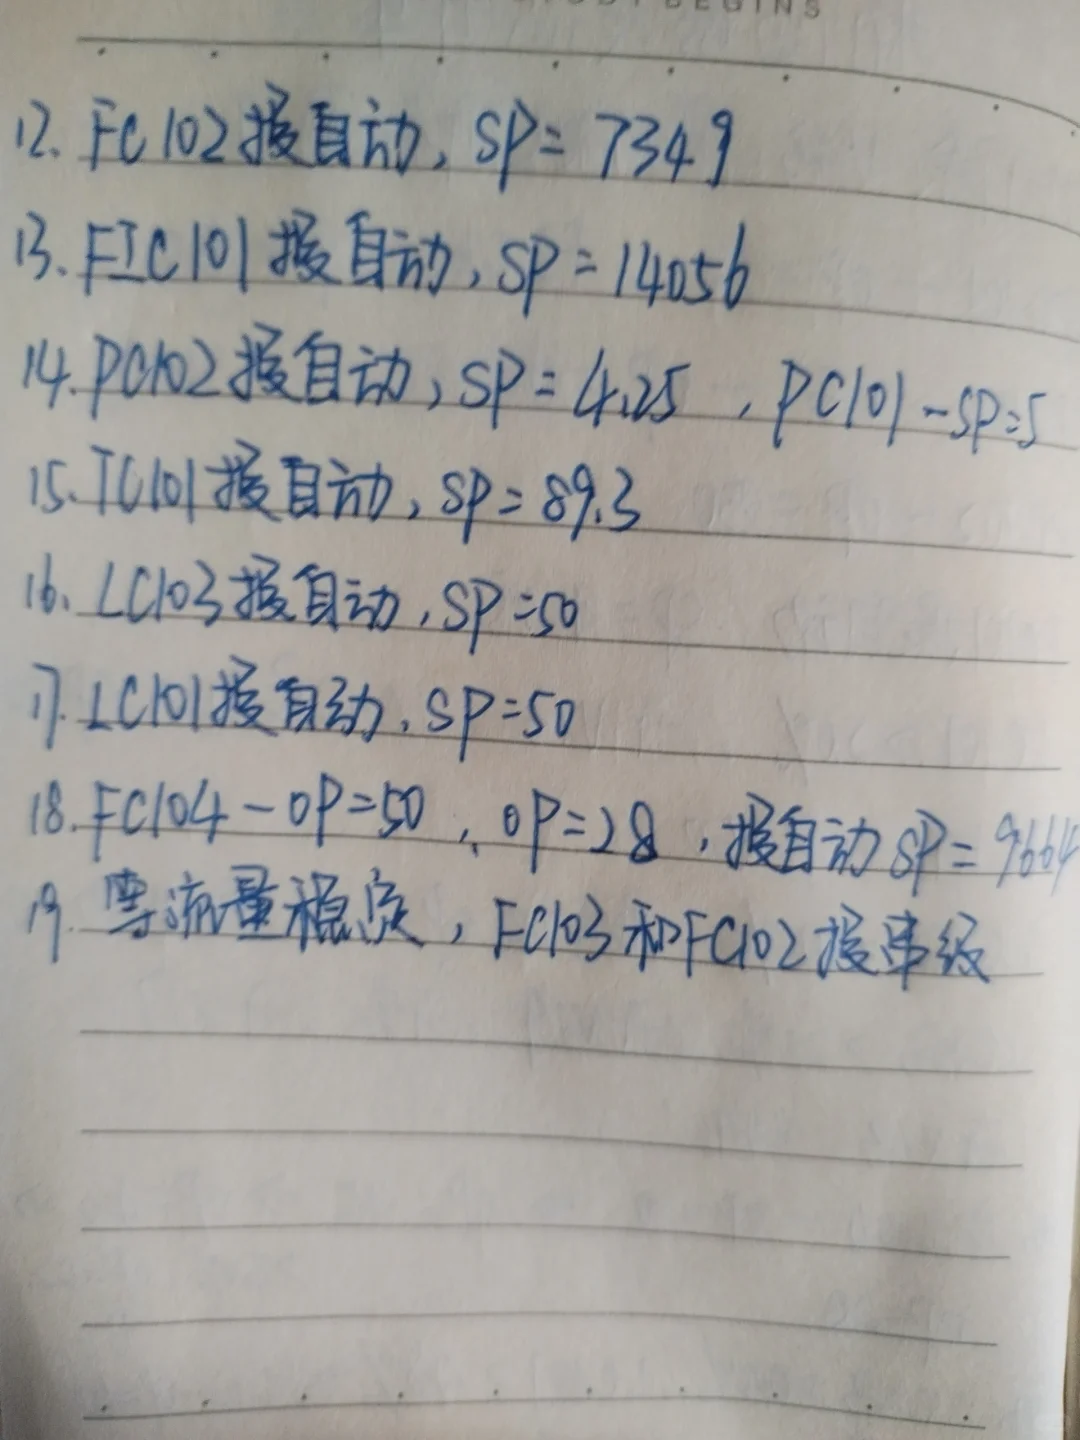 BEGINS
12. FC102投自动, SP=7349
13. FIC101投自动, SP=14056
14. PC102投自动, SP=4.25, PC101-SP=5
15. TC101投自动, SP=89.3
16. LC103投自动, SP=50
17. LC101投自动, SP=50
18. FC104-OP=50, OP=28, 投自动SP=9664
19. 等流量稳定, FC103和FC102投串级